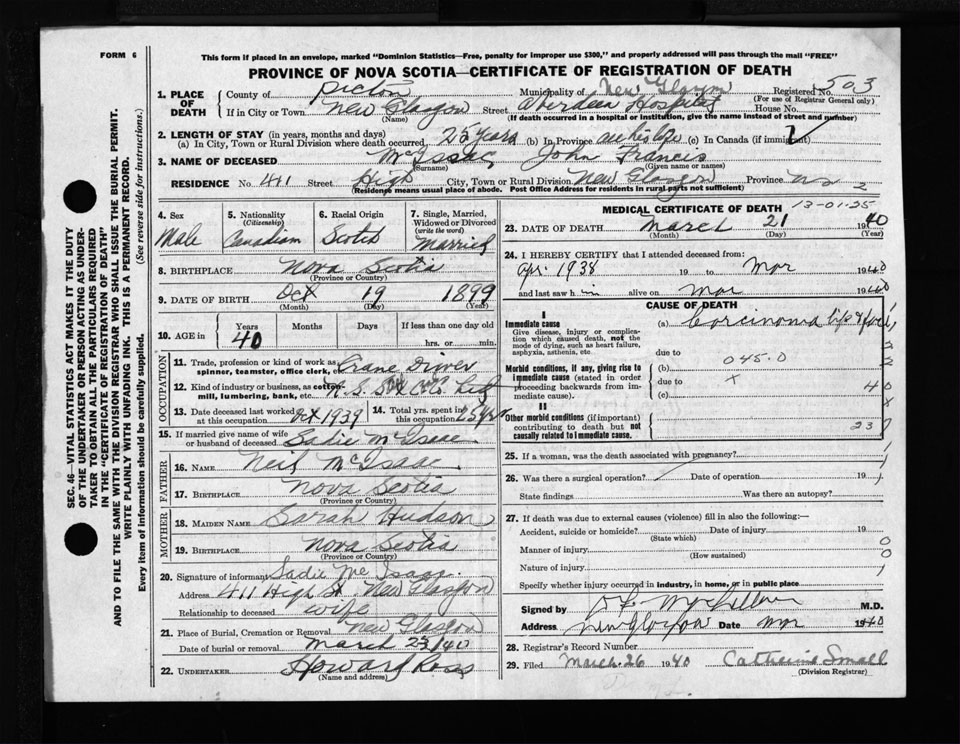 FORM 6
This form if placed in an envelope, marked "Dominion Statistics—Free, penalty for improper use $300," and properly addressed will pass through the mail "FREE"
PROVINCE OF NOVA SCOTIA—CERTIFICATE OF REGISTRATION OF DEATH
1. PLACE OF DEATH County of Pictou Municipality of New Glasgow Registered No. 503
(For use of Registrar General only)
If in City or Town New Glasgow Street Aberdeen Hospital House No.
(Name) (If death occurred in a hospital or institution, give the name instead of street and number)
2. LENGTH OF STAY (in years, months and days)
(a) In City, Town or Rural Division where death occurred 25 years (b) In Province all his life (c) In Canada (if immigrant)
3. NAME OF DECEASED McIsaac John Francis
(Surname) (Given name or names)
RESIDENCE No. 411 Street High City, Town or Rural Division New Glasgow Province NS 2
(Residence means usual place of abode. Post Office Address for residents in rural parts not sufficient)
4. Sex 5. Nationality (Citizenship) 6. Racial Origin 7. Single, Married, Widowed or Divorced (write the word)
Male Canadian Scotch Married
8. BIRTHPLACE Nova Scotia
(Province or Country)
9. DATE OF BIRTH Oct 19 1899
(Month) (Day) (Year)
10. AGE in Years Months Days If less than one day
40 hrs. or min.
OCCUPATION
11. Trade, profession or kind of work as spinner, teamster, office clerk, etc. Crane Driver
12. Kind of industry or business, as cotton mill, lumbering, bank, etc. N.S. Stl & C Co Ltd
13. Date deceased last worked at this occupation Oct 1939 14. Total yrs. spent in this occupation 25 yrs
15. If married give name of wife or husband of deceased Sadie McIsaac
FATHER
16. NAME Neil McIsaac
17. BIRTHPLACE Nova Scotia
(Province or Country)
MOTHER
18. MAIDEN NAME Sarah Hudson
19. BIRTHPLACE Nova Scotia
(Province or Country)
20. Signature of informant Sadie McIsaac
Address 411 High St. New Glasgow
Relationship to deceased wife
21. Place of Burial, Cremation or Removal New Glasgow
Date of burial or removal March 23/40
22. UNDERTAKER Howard Ross
(Name and address)
MEDICAL CERTIFICATE OF DEATH 13-01-25
23. DATE OF DEATH March 21 1940
(Month) (Day) (Year)
24. I HEREBY CERTIFY that I attended deceased from:
Apr. 1938 19 to Mar 1940
and last saw h im alive on Mar 1940
CAUSE OF DEATH
I
Immediate cause (a) Carcinoma lip & face
Give disease, injury or complication which caused death, not the mode of dying, such as heart failure, asphyxia, asthenia, etc
due to
045.0
Morbid conditions, if any, giving rise to immediate cause (stated in order proceeding backwards from immediate cause). (b)
due to x
(c)
40
x
II
Other morbid conditions (if important) contributing to death but not causally related to immediate cause.
23
25. If a woman, was the death associated with pregnancy?
26. Was there a surgical operation? Date of operation 19
State findings Was there an autopsy?
27. If death was due to external causes (violence) fill in also the following:—
Accident, suicide or homicide? Date of injury 19
(State which)
Manner of injury
(How sustained)
Nature of injury
Specify whether injury occurred in industry, in home, or in public place
Signed by M.D.
Address New Glasgow Date Mar 1940
28. Registrar's Record Number
29. Filed March 26 1940 Catherine Small
(Division Registrar)
SEC. 46—VITAL STATISTICS ACT MAKES IT THE DUTY
OF THE UNDERTAKER OR PERSON ACTING AS UNDERTAKER TO OBTAIN ALL THE PARTICULARS REQUIRED
IN THE "CERTIFICATE OF REGISTRATION OF DEATH"
AND TO FILE THE SAME WITH THE DIVISION REGISTRAR WHO SHALL ISSUE THE BURIAL PERMIT.
WRITE PLAINLY WITH UNFADING INK. THIS IS A PERMANENT RECORD.
Every item of information should be carefully supplied. (See reverse side for instructions.)